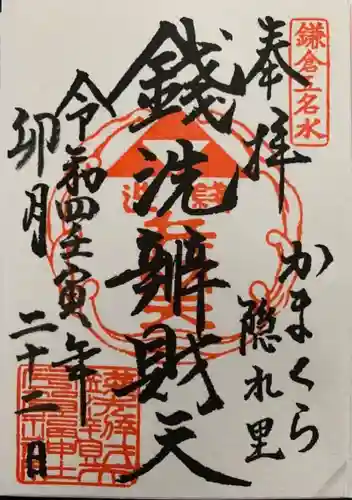 鎌倉五名水
奉拝
かまくら
隠れ里
銭洗辧財天
令和四壬寅年
卯月
二十二日